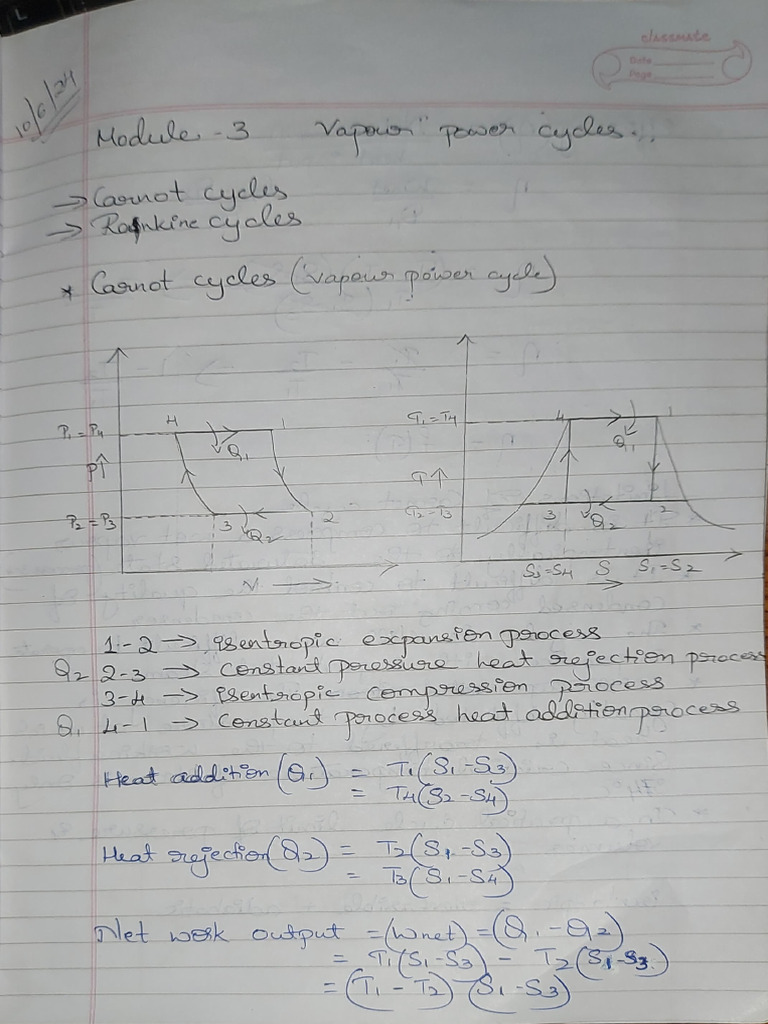 classmate
Date
Page
10/6/24
Module - 3 Vapour power cycles.
→ Carnot cycles
→ Rankine cycles
* Carnot cycles (vapour power cycle)
P1 = P4
4
1
Q1
P↑
P2 = P3
3
2
Q2
V →
T1 = T4
4
1
Q1
T↑
T2 = T3
3
2
Q2
S3=S4 S S1=S2
1-2 → isentropic expansion process
Q2 2-3 → constant pressure heat rejection process
3-4 → isentropic compression process
Q1 4-1 → constant process heat addition process
Heat addition (Q1) = T1(S1-S3)
= T4(S2-S4)
Heat rejection (Q2) = T2(S1-S3)
= T3(S1-S4)
Net work output = (Wnet) = (Q1 - Q2)
= T1(S1-S3) - T2(S1-S3)
= (T1 - T2) (S1-S3)